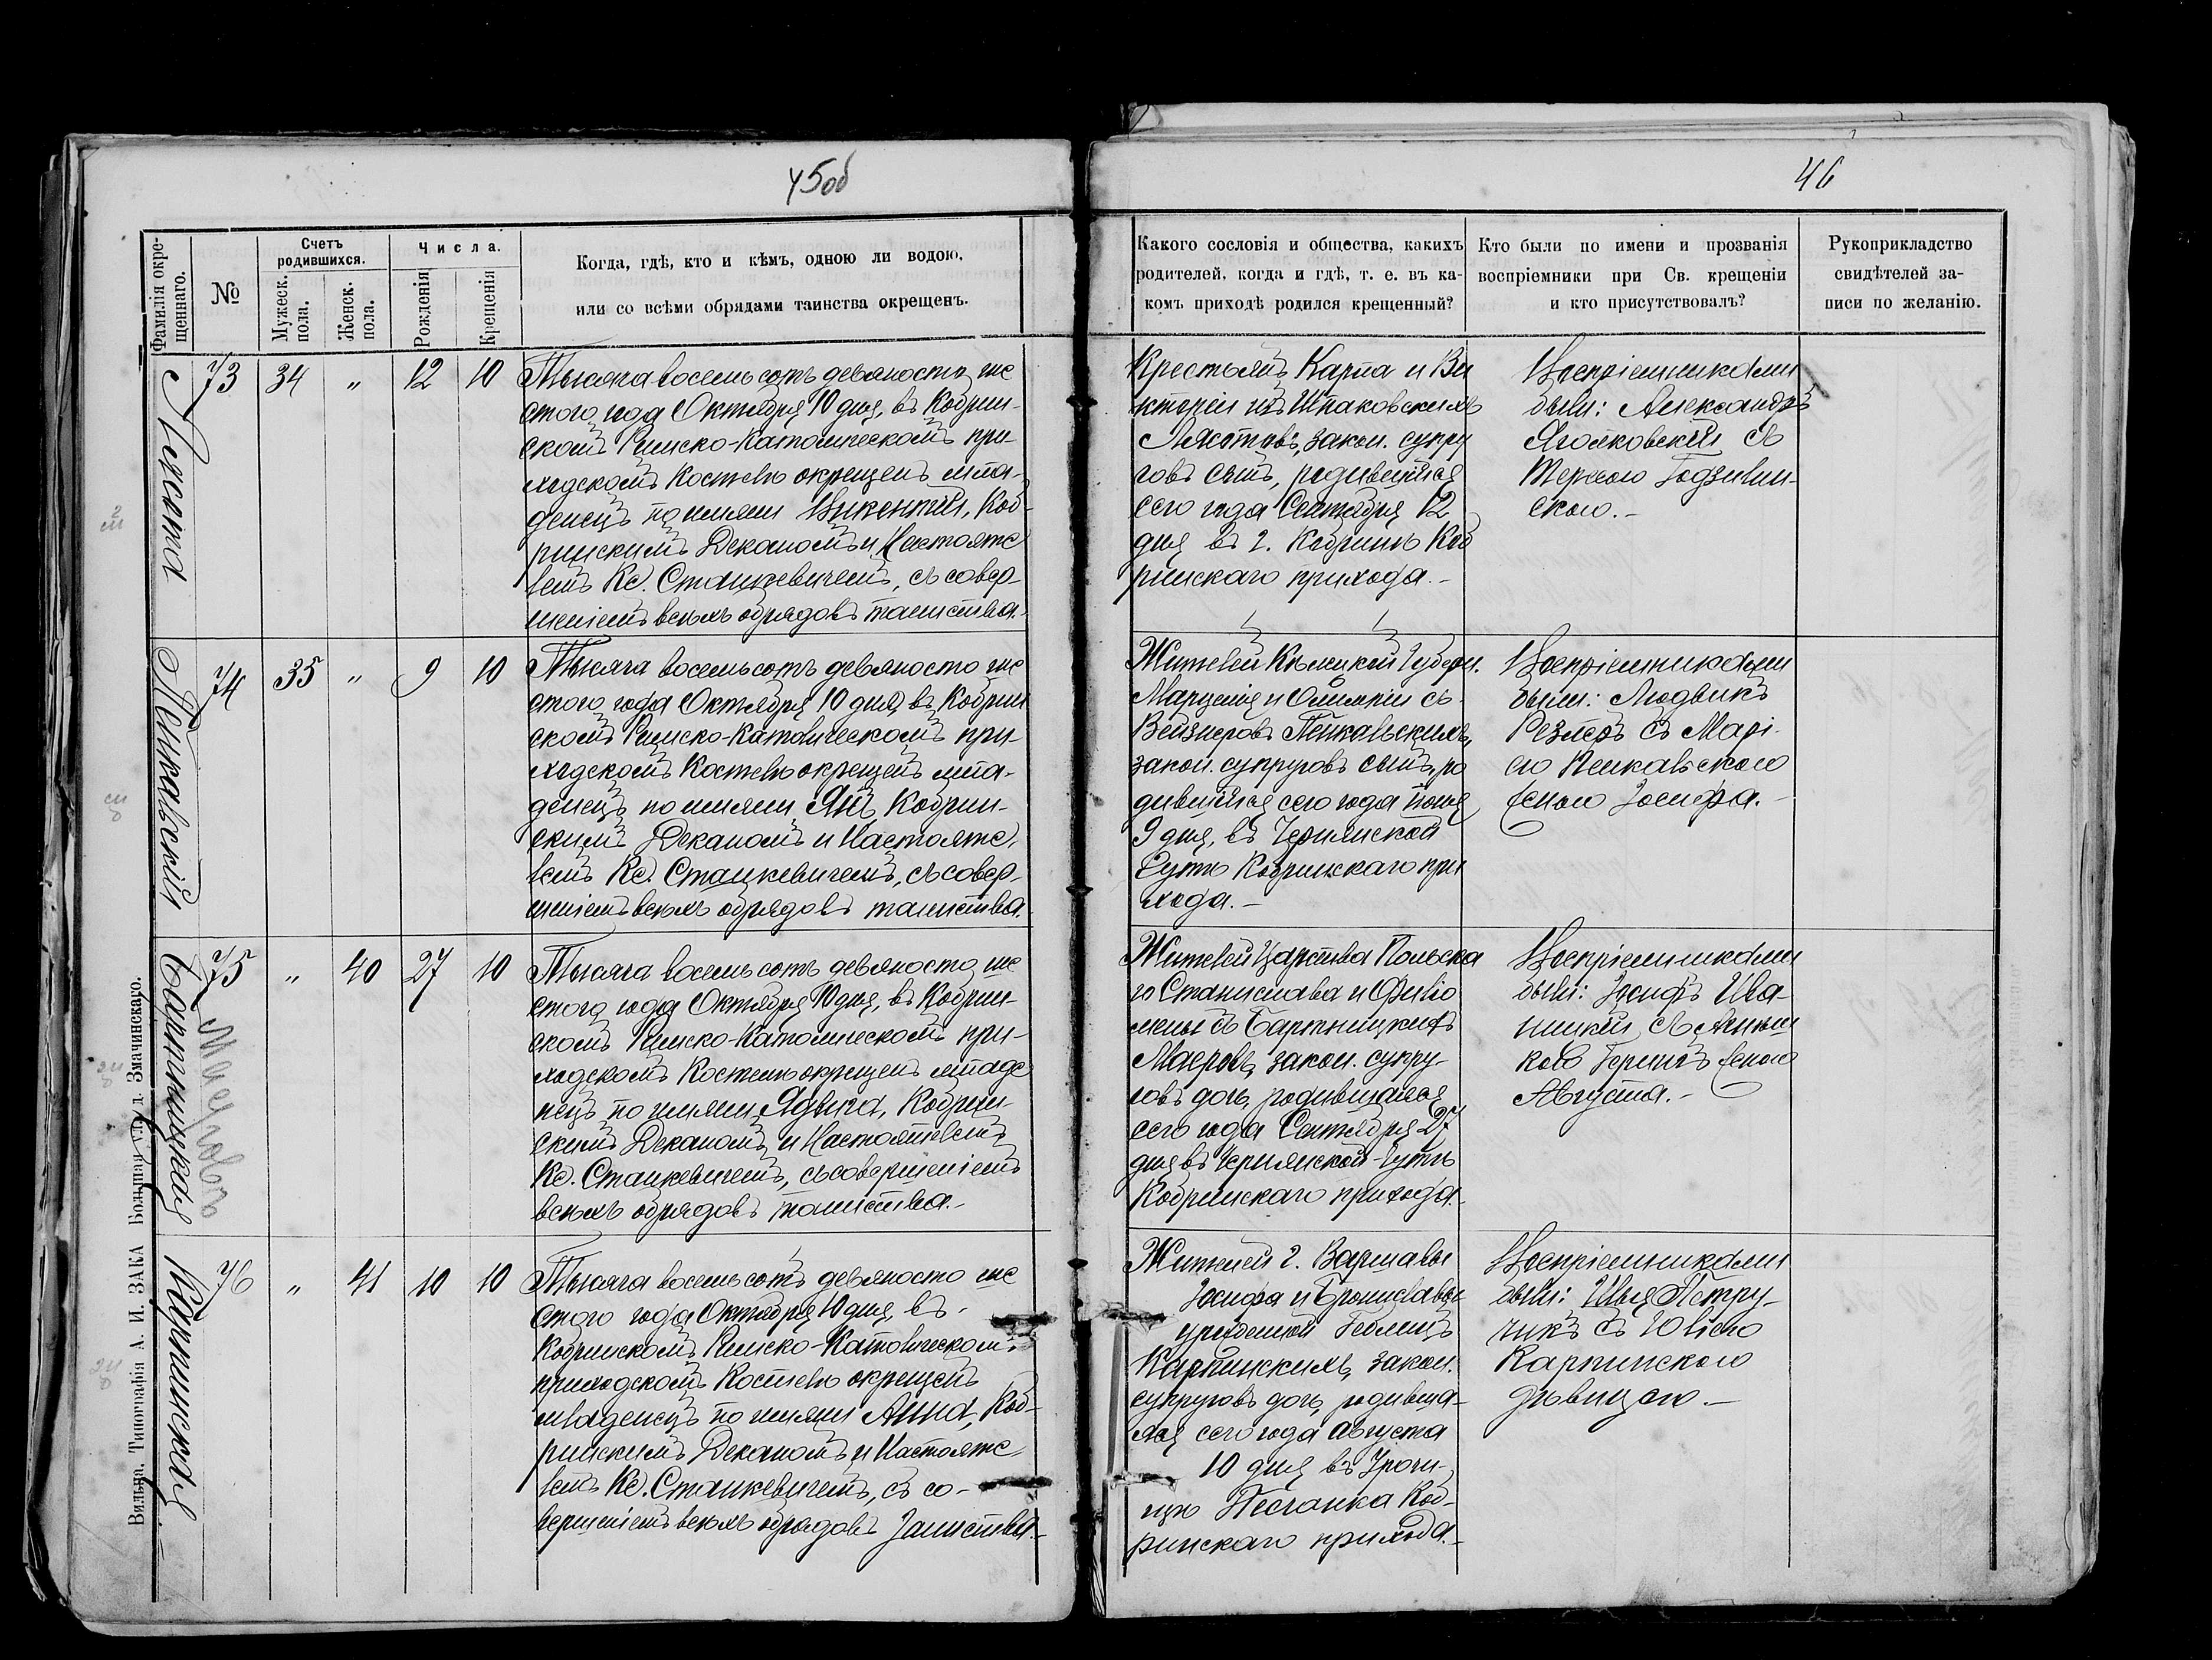 45об
Фамилія окре-
щеннаго.
№
Счетъ
родившихся.
Мужеск.
пола.
Женск.
пола.
Числа.
Рожденія
Крещенія
Когда, гдѣ, кто и кѣмъ, одною ли водою,
или со всѣми обрядами таинства окрещенъ.
Ляхота
73
34
"
12
10
Тысяча восемьсотъ девяносто ше
стого года Октября 10 дня, въ Кобрин-
скомъ Римско-Католическомъ при-
ходскомъ Костелѣ окрещенъ мла-
денецъ по имени Викентій, Коб-
ринскимъ Деканомъ и Настояте
лемъ Кс. Станкевичемъ, съ совер-
шеніемъ всѣхъ обрядовъ таинства.
Пенкавскій
74
35
"
9
10
Тысяча восемьсотъ девяносто ше
стого года Октября 10 дня, въ Кобрин
скомъ Римско-Католическомъ при-
ходскомъ Костелѣ окрещенъ мла-
денецъ по имени Янъ, Кобрин-
скимъ Деканомъ и Настояте,
лемъ Кс. Станкевичемъ, съ совер-
шеніемъ всѣхъ обрядовъ таинства.
Бартницкая
Маеровъ
75
"
40
27
10
Тысяча восемьсотъ девяносто ше
стого года Октября 10 дня, въ Кобрин-
скомъ Римско-Католическомъ при-
ходскомъ Костелѣ окрещенъ младе
нецъ по имени Ядвига, Кобрин-
скимъ Деканомъ и Настоятелемъ
Кс. Станкевичемъ, съ совершеніемъ
всѣхъ обрядовъ таинства.-
Карпинская
76
"
41
10
10
Тысяча восемьсотъ девяносто ше
стого года Октября 10 дня, въ-
Кобринскомъ Римско-Католическомъ
приходскомъ Костелѣ окрещенъ
младенецъ по имени Анна, Коб-
ринскимъ Деканомъ и Настояте-
лемъ Кс. Станкевичемъ, съ со-
вершеніемъ всѣхъ обрядовъ таинства.-
Вильна. Типографія А. И. ЗАКА Большая ул. д. Змачинскаго.
46
Какого сословія и общества, какихъ
родителей, когда и гдѣ, т. е. въ ка-
комъ приходѣ родился крещенный?
Кто были по имени и прозванія
воспріемники при Св. крещеніи
и кто присутствовалъ?
Рукоприкладство
свидѣтелей за-
писи по желанію.
Крестьянъ Карпа и Ви
кторіи изъ Шпаковскихъ
Ляхотовъ, закон. супру
говъ сынъ, родившійся
сего года Сентября 12
дня въ г. Кобринѣ Коб
ринскаго прихода.-
Воспріемниками
были: Александръ
съ
Годзишин-
скою.-
Жителей Кѣлецкой Губерн.
и Олимпіи съ-
Вейзнеровъ Пенкавскихъ,
закон. супруговъ сынъ, ро
дившійся сего года Іюня
9 дня, въ Чернянской
Гутѣ Кобринскаго при
хода.-
Воспріемниками
были: Людвикъ
Резлеръ съ Марі-
ею Пенкавскою
женою Іосифа.-
Жителей Царства Польска
го Станислава и Фило
мены съ Бартницкихъ
Маеровъ, закон. супру-
говъ дочь, родившаяся
сего года Сентября 27
дня въ Чернянской-Гутѣ
Кобринскаго прихода.
Воспріемниками
были: Іосифъ Ива-
ницкій съ
Герингъ женою
Августа.-
Жителей г. Варшавы
Іосифа и Брониславы
урожденной
Карпинскихъ, закон.
супруговъ дочь, родивша-
яся сего года Августа
10 дня въ Урочи-
щѣ Песчанка Коб-
ринскаго прихода.-
Воспріемниками
были: Илья Петру-
чикъ съ Юліею
Карпинскою
дѣвицею.-